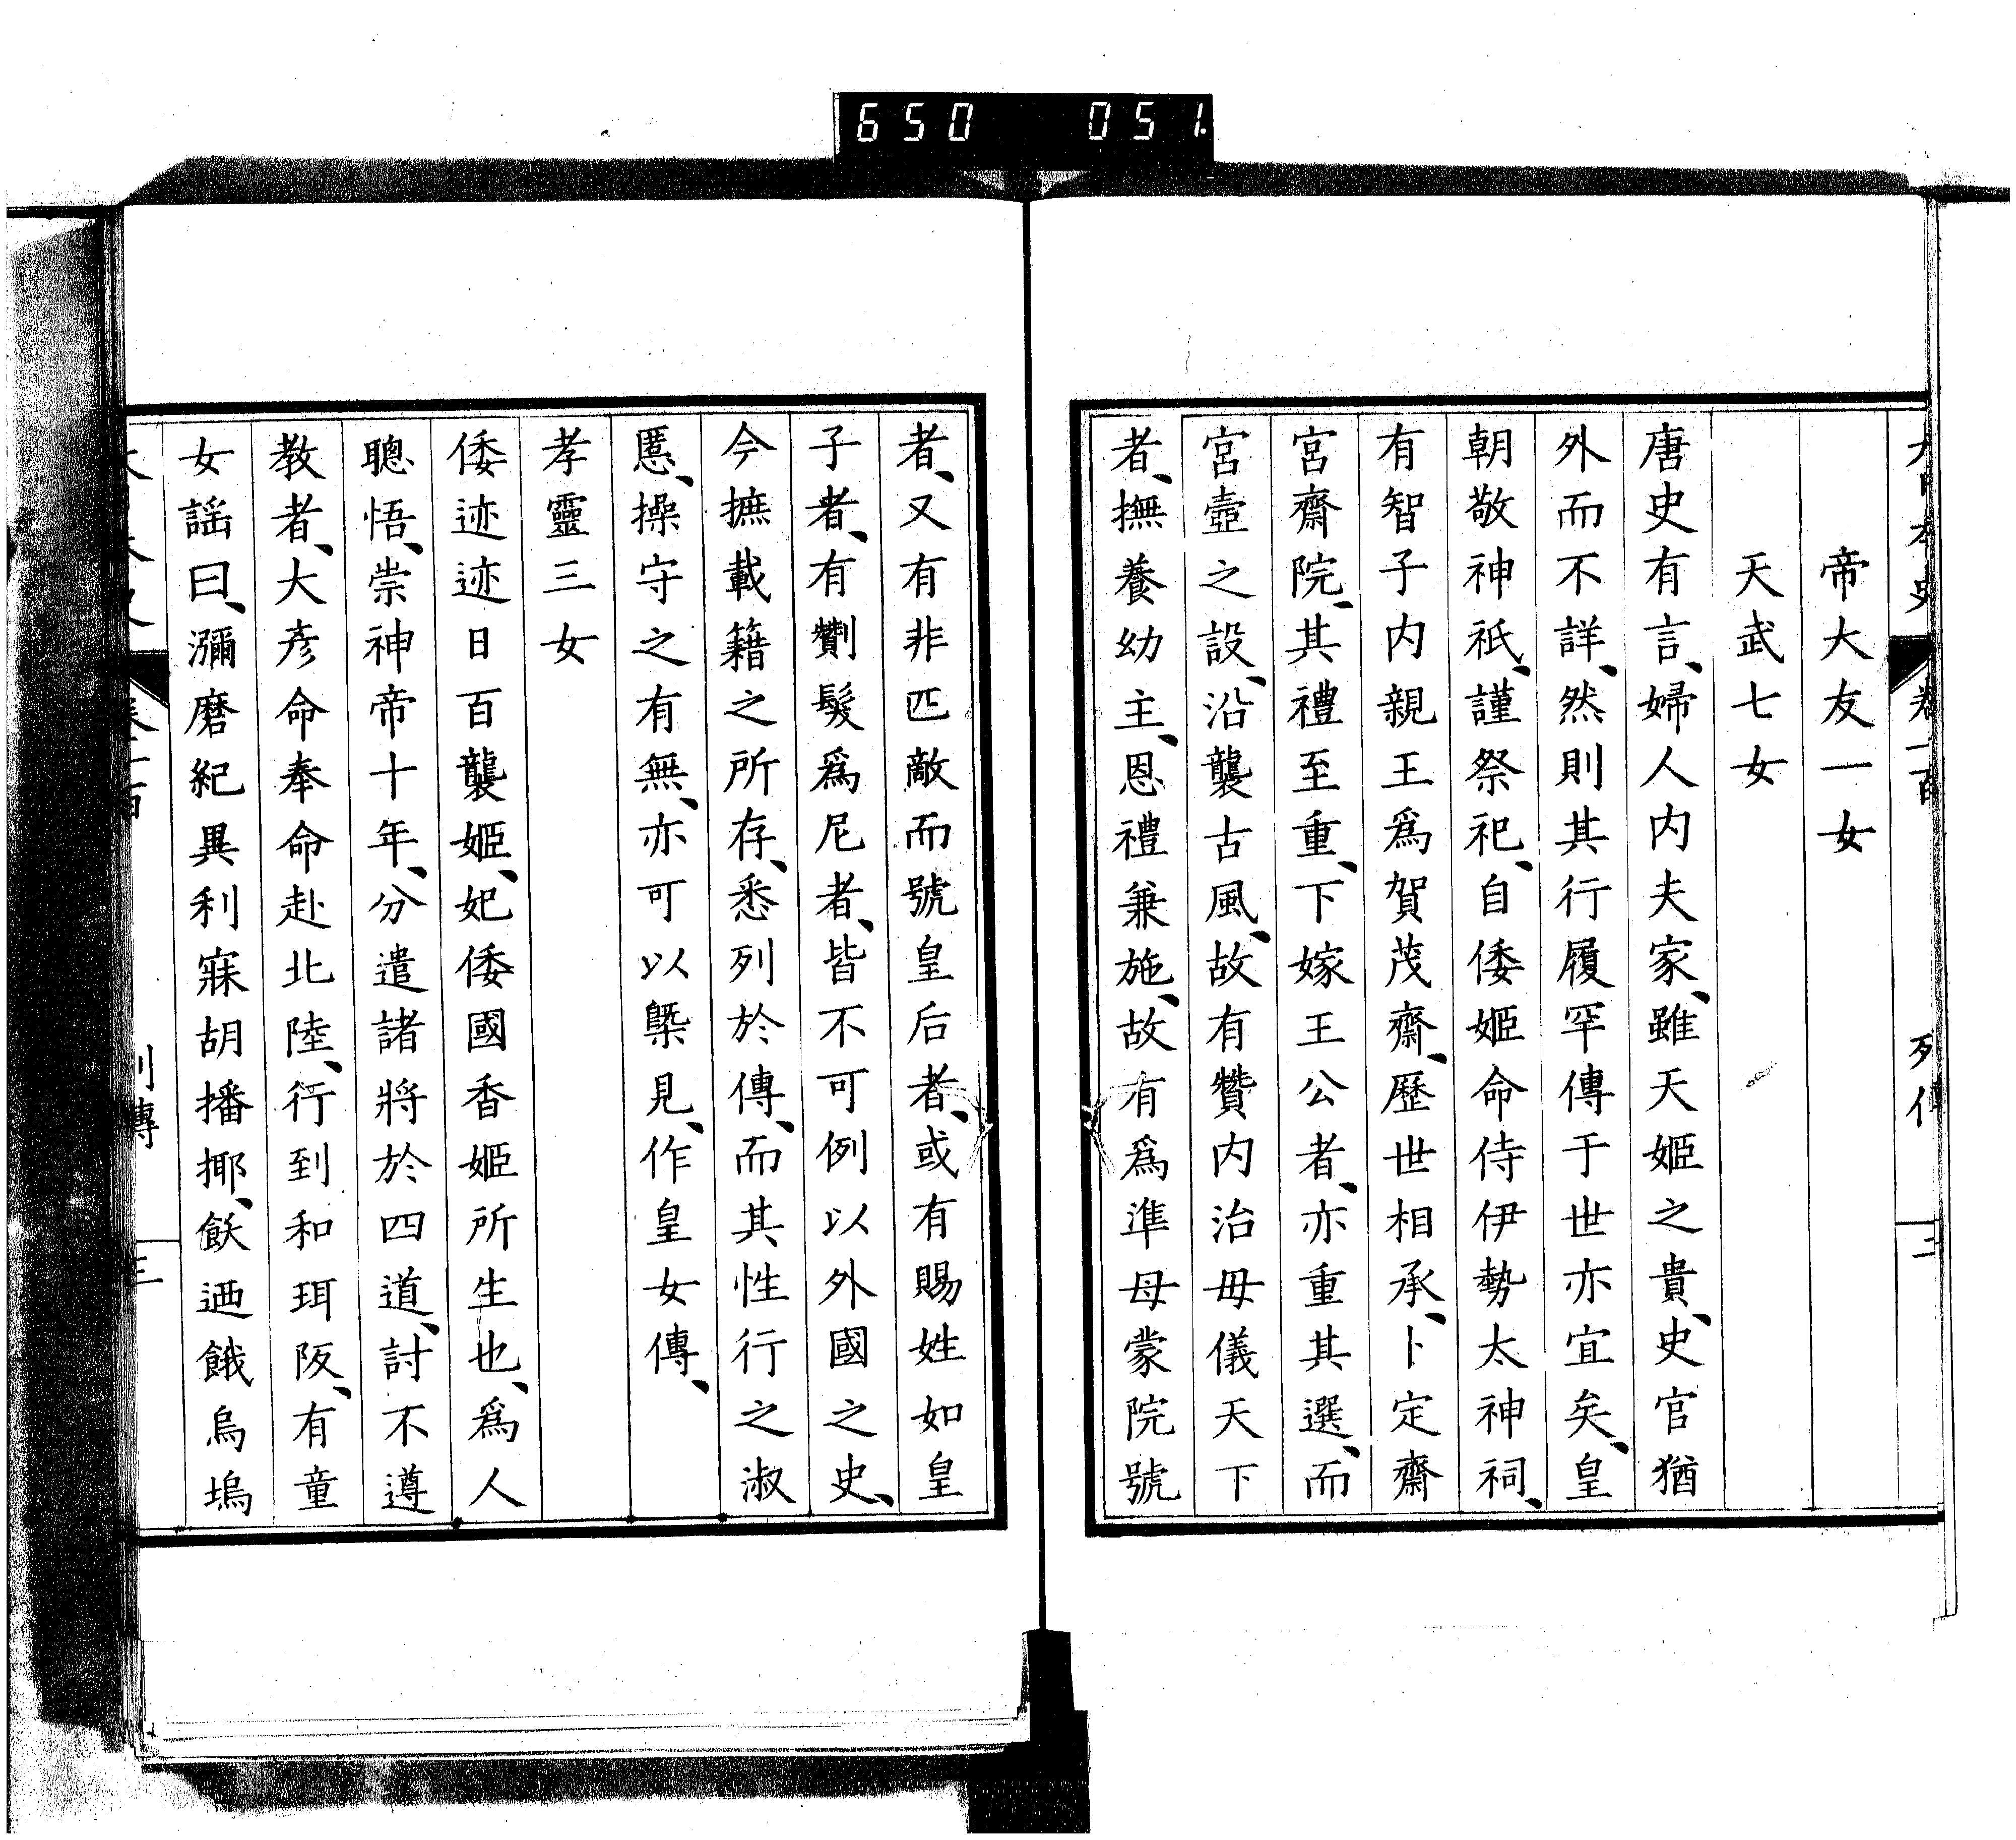 650 051.
大日本史 卷一百 列傳
帝大友一女
天武七女
唐史有言、婦人内夫家、雖天姬之貴、史官猶
外而不詳、然則其行履罕傳于世亦宜矣、皇
朝敬神祇、謹祭祀、自倭姬命侍伊勢太神祠、
有智子内親王爲賀茂齋、歷世相承、卜定齋
宮齋院、其禮至重、下嫁王公者、亦重其選、而
宮壼之設、沿襲古風、故有贊内治毋儀天下
者、撫養幼主、恩禮兼施、故有爲準母蒙院號
者、又有非匹敵而號皇后者、或有賜姓如皇
子者、有劗髮爲尼者、皆不可例以外國之史、
今摭載籍之所存、悉列於傳、而其性行之淑
慝、操守之有無、亦可以槩見、作皇女傳、
孝靈三女
倭迹迹日百襲姬、妃倭國香姬所生也、爲人
聰悟、崇神帝十年、分遣諸將於四道、討不遵
教者、大彥命奉命赴北陸、行到和珥阪、有童
女謡曰、瀰磨紀異利寐胡播揶、飫迺餓烏塢
列傳 三